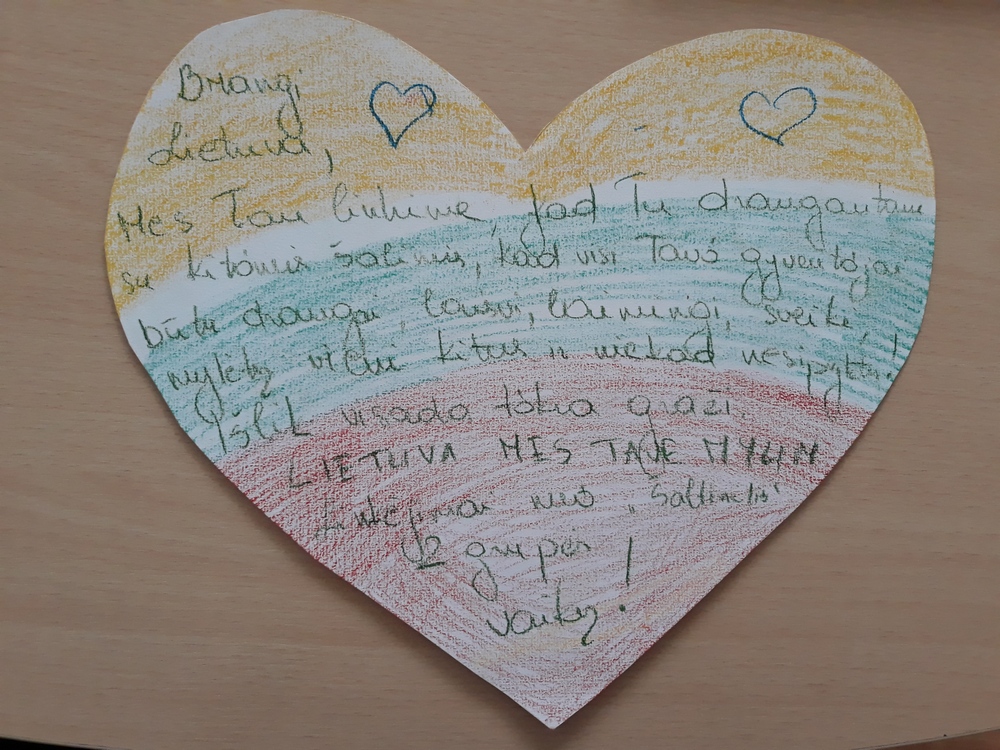 Brangi
Lietuva,
Mes Tau linkime, kad Tu draugautum
su kitomis šalimis, kad visi Tavo gyventojai
būtų draugai, laisvi, laimingi, sveiki,
mylėtų vieni kitus ir niekad nesipyktų!
Išlik visada tokia graži.
LIETUVA MES TAVE MYLIM
Linkėjimai nuo „Šaltinėlis"
12 grupės
vaikų!